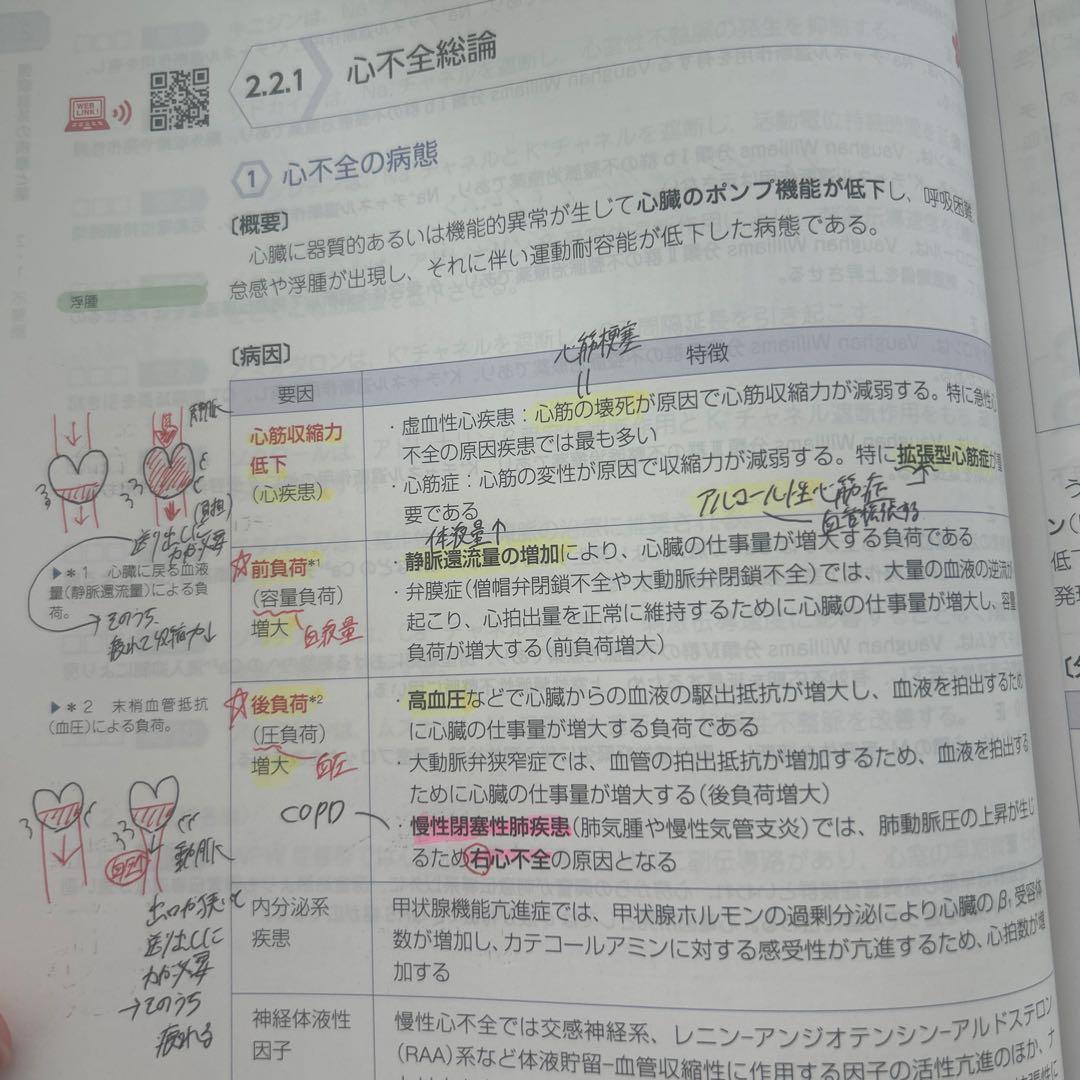 WEB LINK!
2.2.1 心不全総論
1 心不全の病態
〔概要〕
心臓に器質的あるいは機能的異常が生じて心臓のポンプ機能が低下し、呼吸困難
怠感や浮腫が出現し、それに伴い運動耐容能が低下した病態である。
浮腫
〔病因〕
心筋梗塞
要因
特徴
心筋収縮力
低下
(心疾患)
・虚血性心疾患:心筋の壊死が原因で心筋収縮力が減弱する。特に急性心
不全の原因疾患では最も多い
・心筋症:心筋の変性が原因で収縮力が減弱する。特に拡張型心筋症が重
要である
アルコール性心筋症
体液量↑
前負荷*1
(容量負荷)
増大
血液量
・静脈還流量の増加により、心臓の仕事量が増大する負荷である
・弁膜症(僧帽弁閉鎖不全や大動脈弁閉鎖不全)では、大量の血液の逆流が
起こり、心拍出量を正常に維持するために心臓の仕事量が増大し、容量
負荷が増大する(前負荷増大)
後負荷*2
(圧負荷)
増大
血圧
・高血圧などで心臓からの血液の駆出抵抗が増大し、血液を拍出するため
に心臓の仕事量が増大する負荷である
・大動脈弁狭窄症では、血管の拍出抵抗が増加するため、血液を拍出する
ために心臓の仕事量が増大する(後負荷増大)
COPD
・慢性閉塞性肺疾患(肺気腫や慢性気管支炎)では、肺動脈圧の上昇が生じ
るため右心不全の原因となる
内分泌系
疾患
甲状腺機能亢進症では、甲状腺ホルモンの過剰分泌により心臓のβ1受容体
数が増加し、カテコールアミンに対する感受性が亢進するため、心拍数が増
加する
神経体液性
因子
慢性心不全では交感神経系、レニン-アンジオテンシン-アルドステロン
(RAA)系など体液貯留-血管収縮性に作用する因子の活性亢進のほか、ナ
静脈
(負担)
送り出しに
力が必要
▶*1 心臓に戻る血液
量(静脈還流量)による負
荷。
→そのうち
疲れて収縮力↓
▶*2 末梢血管抵抗
(血圧)による負荷。
血圧
動脈
出口が狭いと
送り出しに
力が必要
→そのうち
疲れる